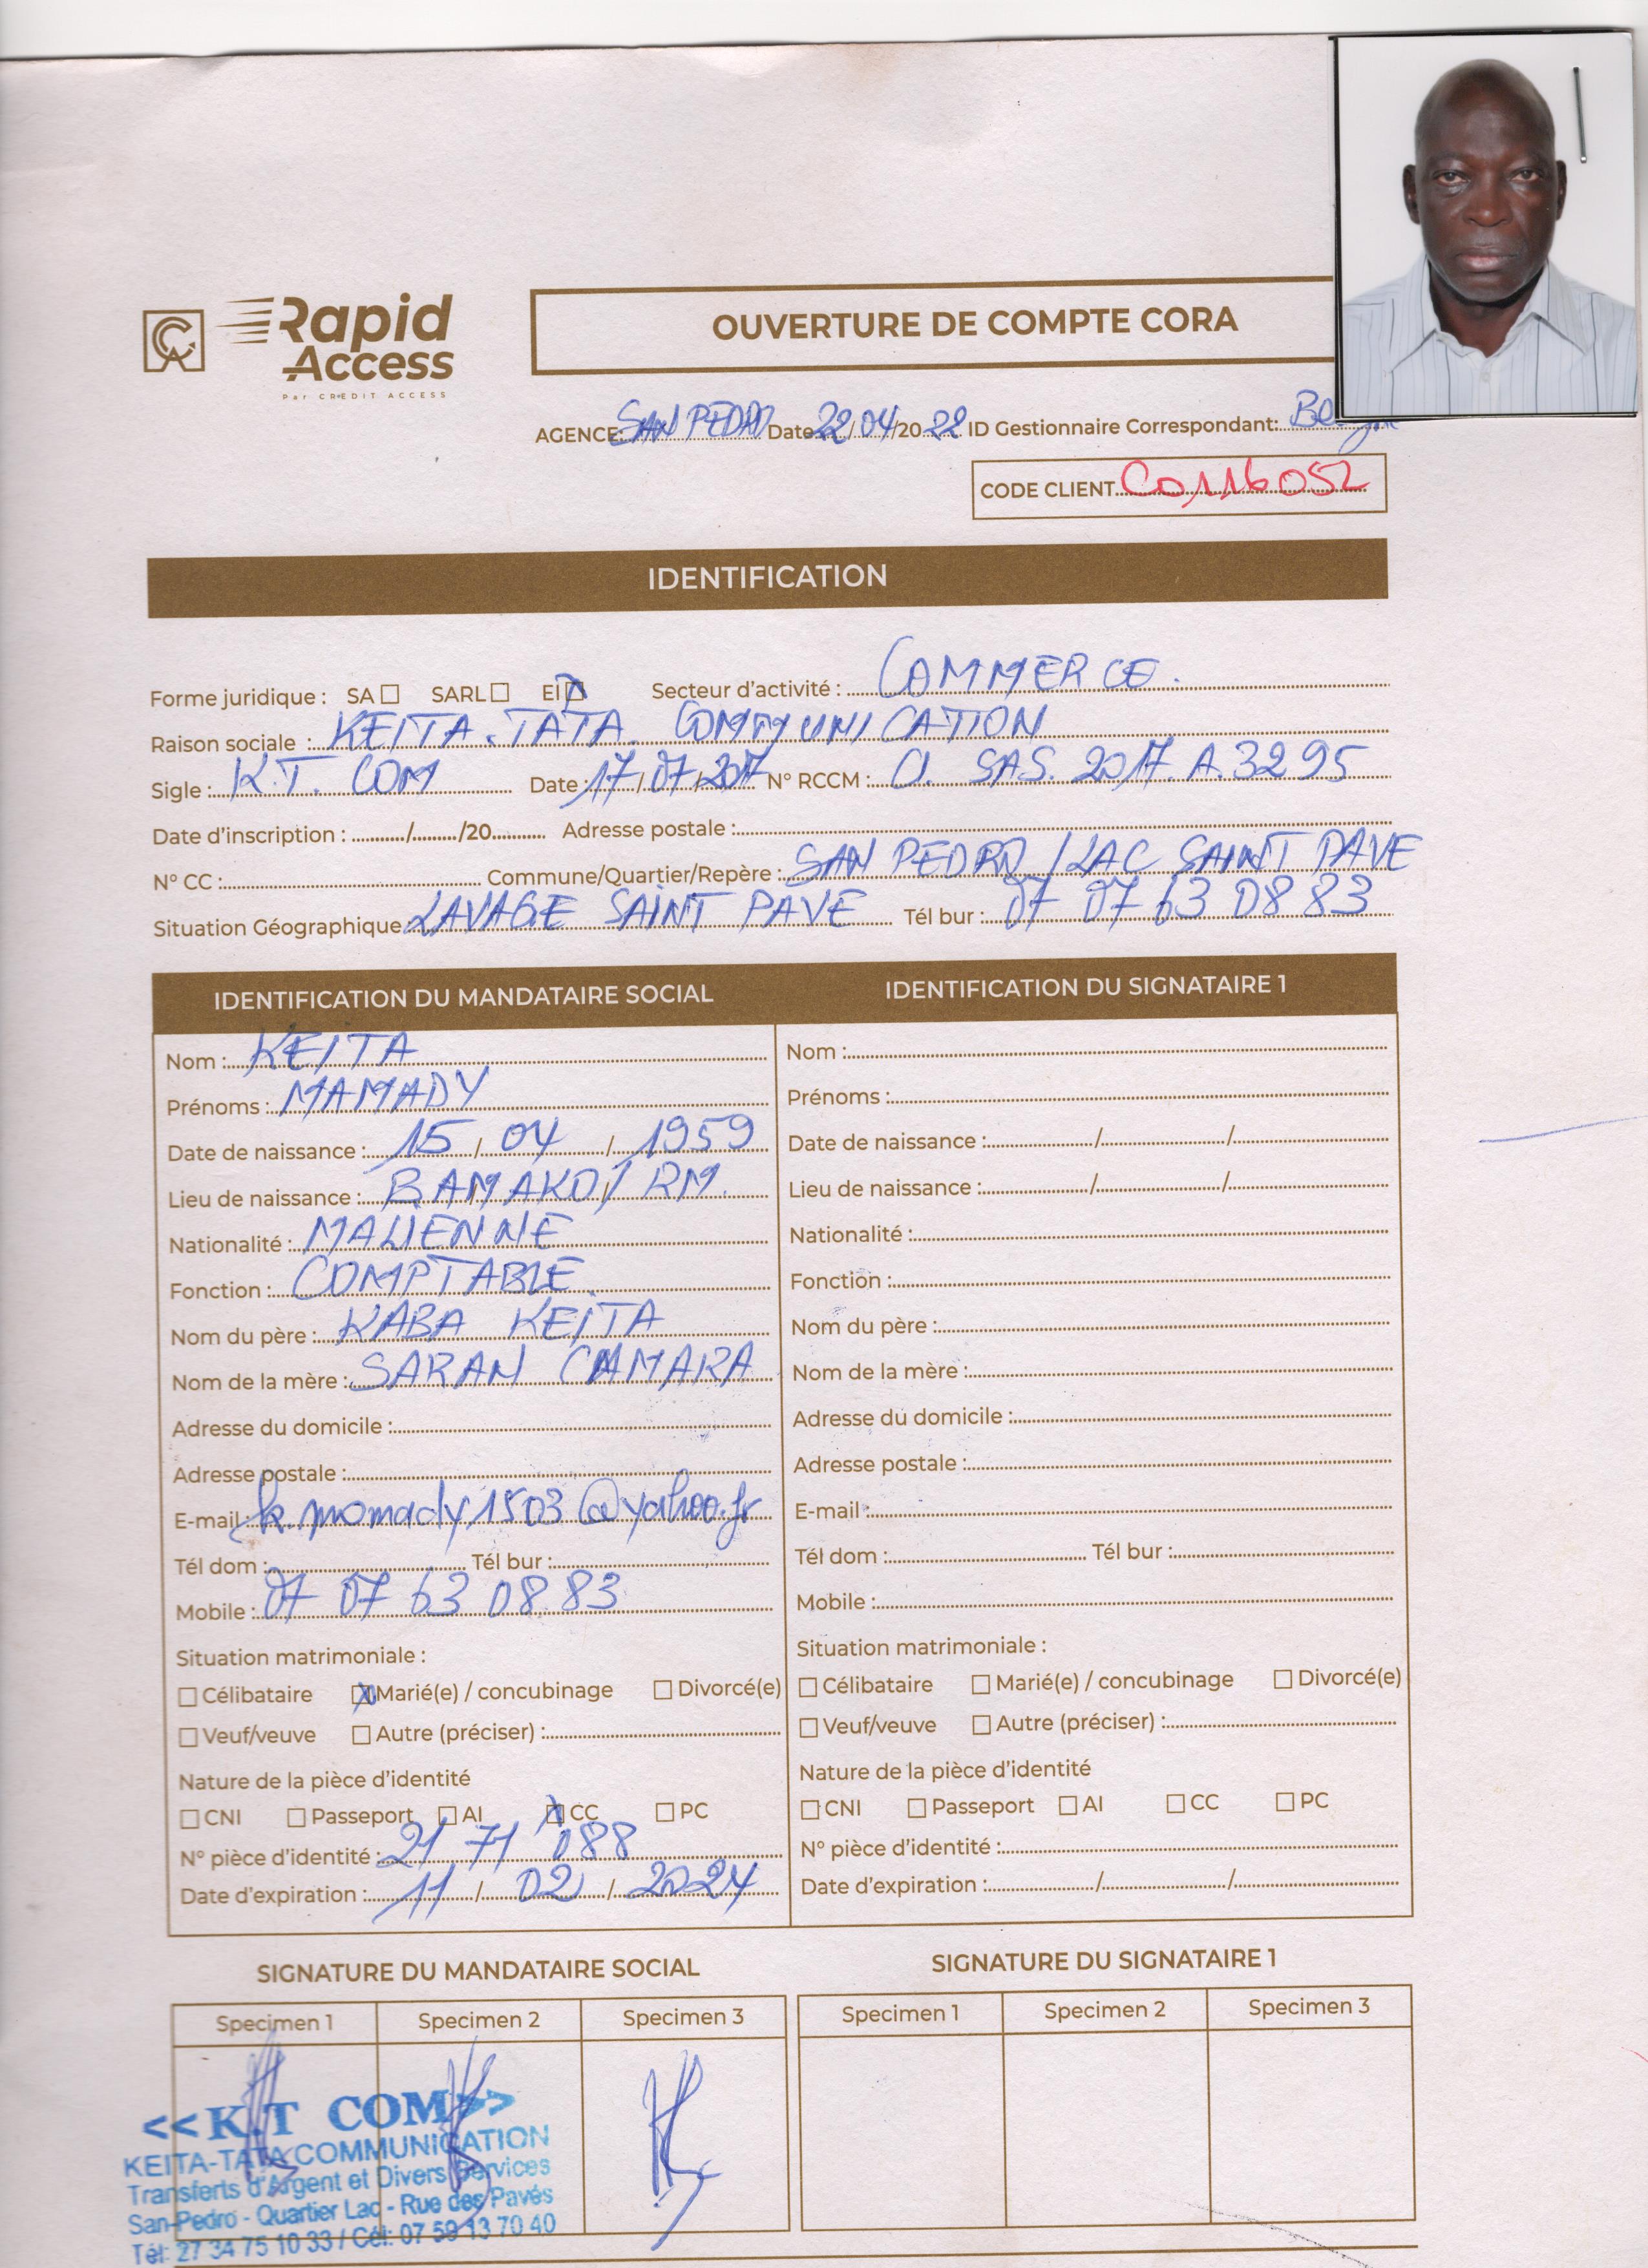 Rapid
Access
Par CREDIT ACCESS
OUVERTURE DE COMPTE CORA
AGENCE: SAN PEDRO Date 22/04/2022 ID Gestionnaire Correspondant:
CODE CLIENT C0116052
IDENTIFICATION
Forme juridique : SA SARL EI Secteur d'activité : COMMERCE.
Raison sociale : KEITA.TATA COMMUNICATION
Sigle : K.T. COM Date : 17/07/2017 N° RCCM : CI. SAS. 2017. A. 3295
Date d'inscription : ......../......../20.......... Adresse postale :
N° CC : Commune/Quartier/Repère : SAN PEDRO / LAC SAINT PAVE
Situation Géographique LAVAGE SAINT PAVE Tél bur : 07 07 63 08 83
IDENTIFICATION DU MANDATAIRE SOCIAL
Nom : KEITA
Prénoms : MAMADY
Date de naissance : 15 / 04 / 1959
Lieu de naissance : BAMAKO / RM.
Nationalité : MALIENNE
Fonction : COMPTABLE
Nom du père : KABA KEITA
Nom de la mère : SARAN CAMARA
Adresse du domicile :
Adresse postale :
E-mail : k.momady1503@yahoo.fr
Tél dom : Tél bur :
Mobile : 07 07 63 08 83
Situation matrimoniale :
Célibataire Marié(e) / concubinage Divorcé(e)
Veuf/veuve Autre (préciser) :
Nature de la pièce d'identité
CNI Passeport AI CC PC
N° pièce d'identité : 21 71 088
Date d'expiration : 11 / 02 / 2024
IDENTIFICATION DU SIGNATAIRE 1
Nom :
Prénoms :
Date de naissance : / /
Lieu de naissance : / /
Nationalité :
Fonction :
Nom du père :
Nom de la mère :
Adresse du domicile :
Adresse postale :
E-mail :
Tél dom : Tél bur :
Mobile :
Situation matrimoniale :
Célibataire Marié(e) / concubinage Divorcé(e)
Veuf/veuve Autre (préciser) :
Nature de la pièce d'identité
CNI Passeport AI CC PC
N° pièce d'identité :
Date d'expiration : / /
SIGNATURE DU MANDATAIRE SOCIAL
Specimen 1 Specimen 2 Specimen 3
<<K.T COM>>
KEITA-TATA COMMUNICATION
Transferts d'Argent et Divers Services
San-Pedro - Quartier Lac - Rue des Pavés
Tél: 27 34 75 10 33 / Cél: 07 59 13 70 40
SIGNATURE DU SIGNATAIRE 1
Specimen 1 Specimen 2 Specimen 3